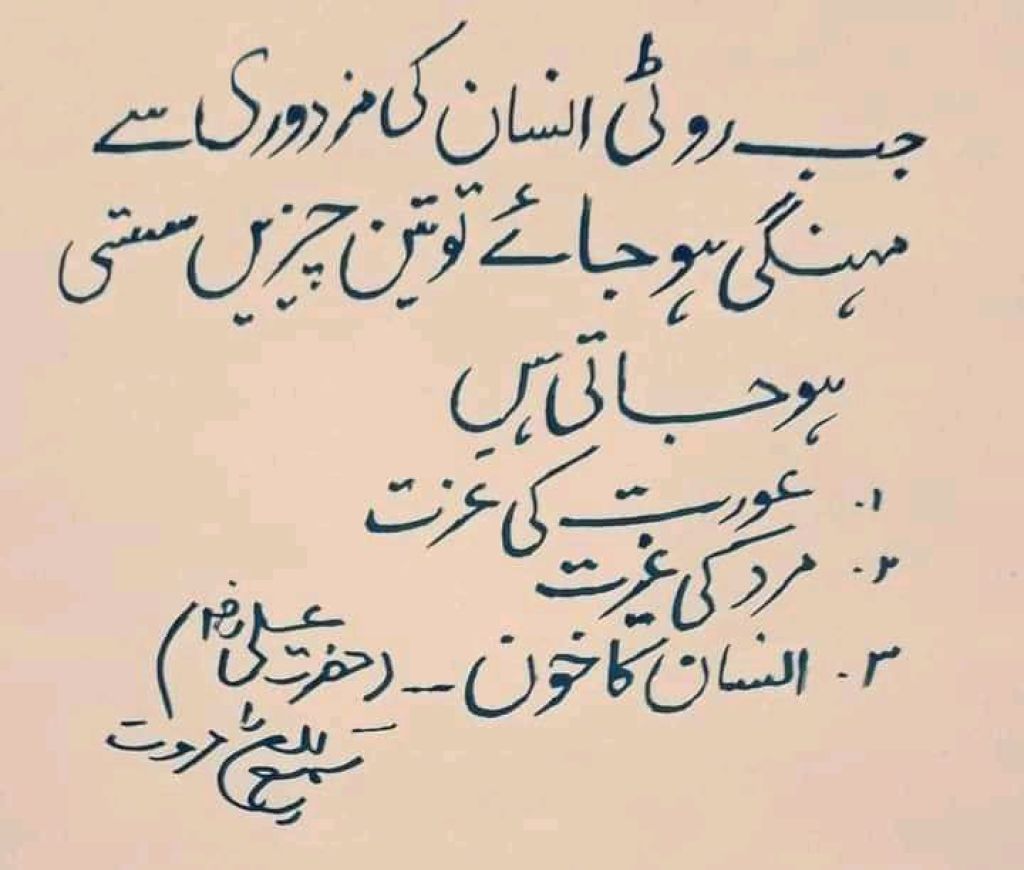 جب روٹی انسان کی مزدوری سے
مہنگی ہو جائے تو تین چیزیں سستی
ہو جاتی ہیں
۱. عورت کی عزت
۲. مرد کی غیرت
۳. انسان کا خون ـ (حضرت علی رضہ)
سمیع اللہ مروت